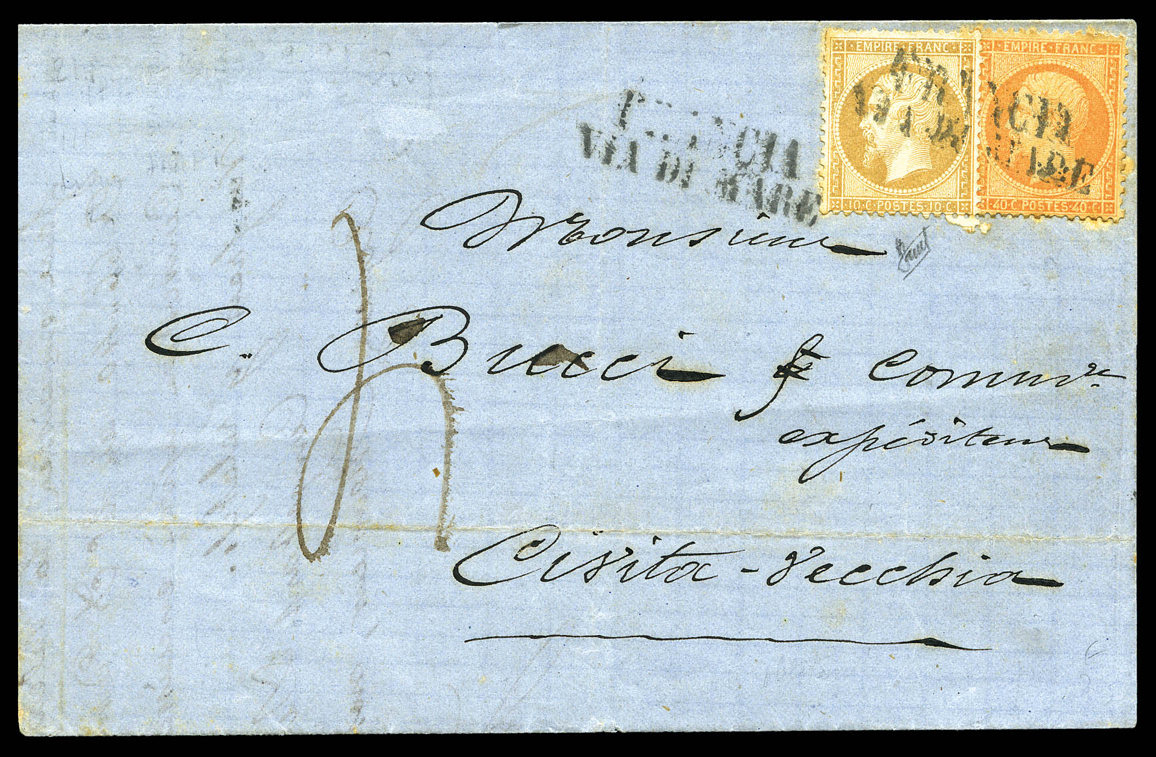 EMPIRE FRANC
EMPIRE FRANC
FRANCIA
VIA DI MARE
FRANCIA
VIA DI MARE
10 C POSTES 10 C
40 C POSTES 40 C
Monsieur
C. Bucci
expéditeur
Civita-Vecchia